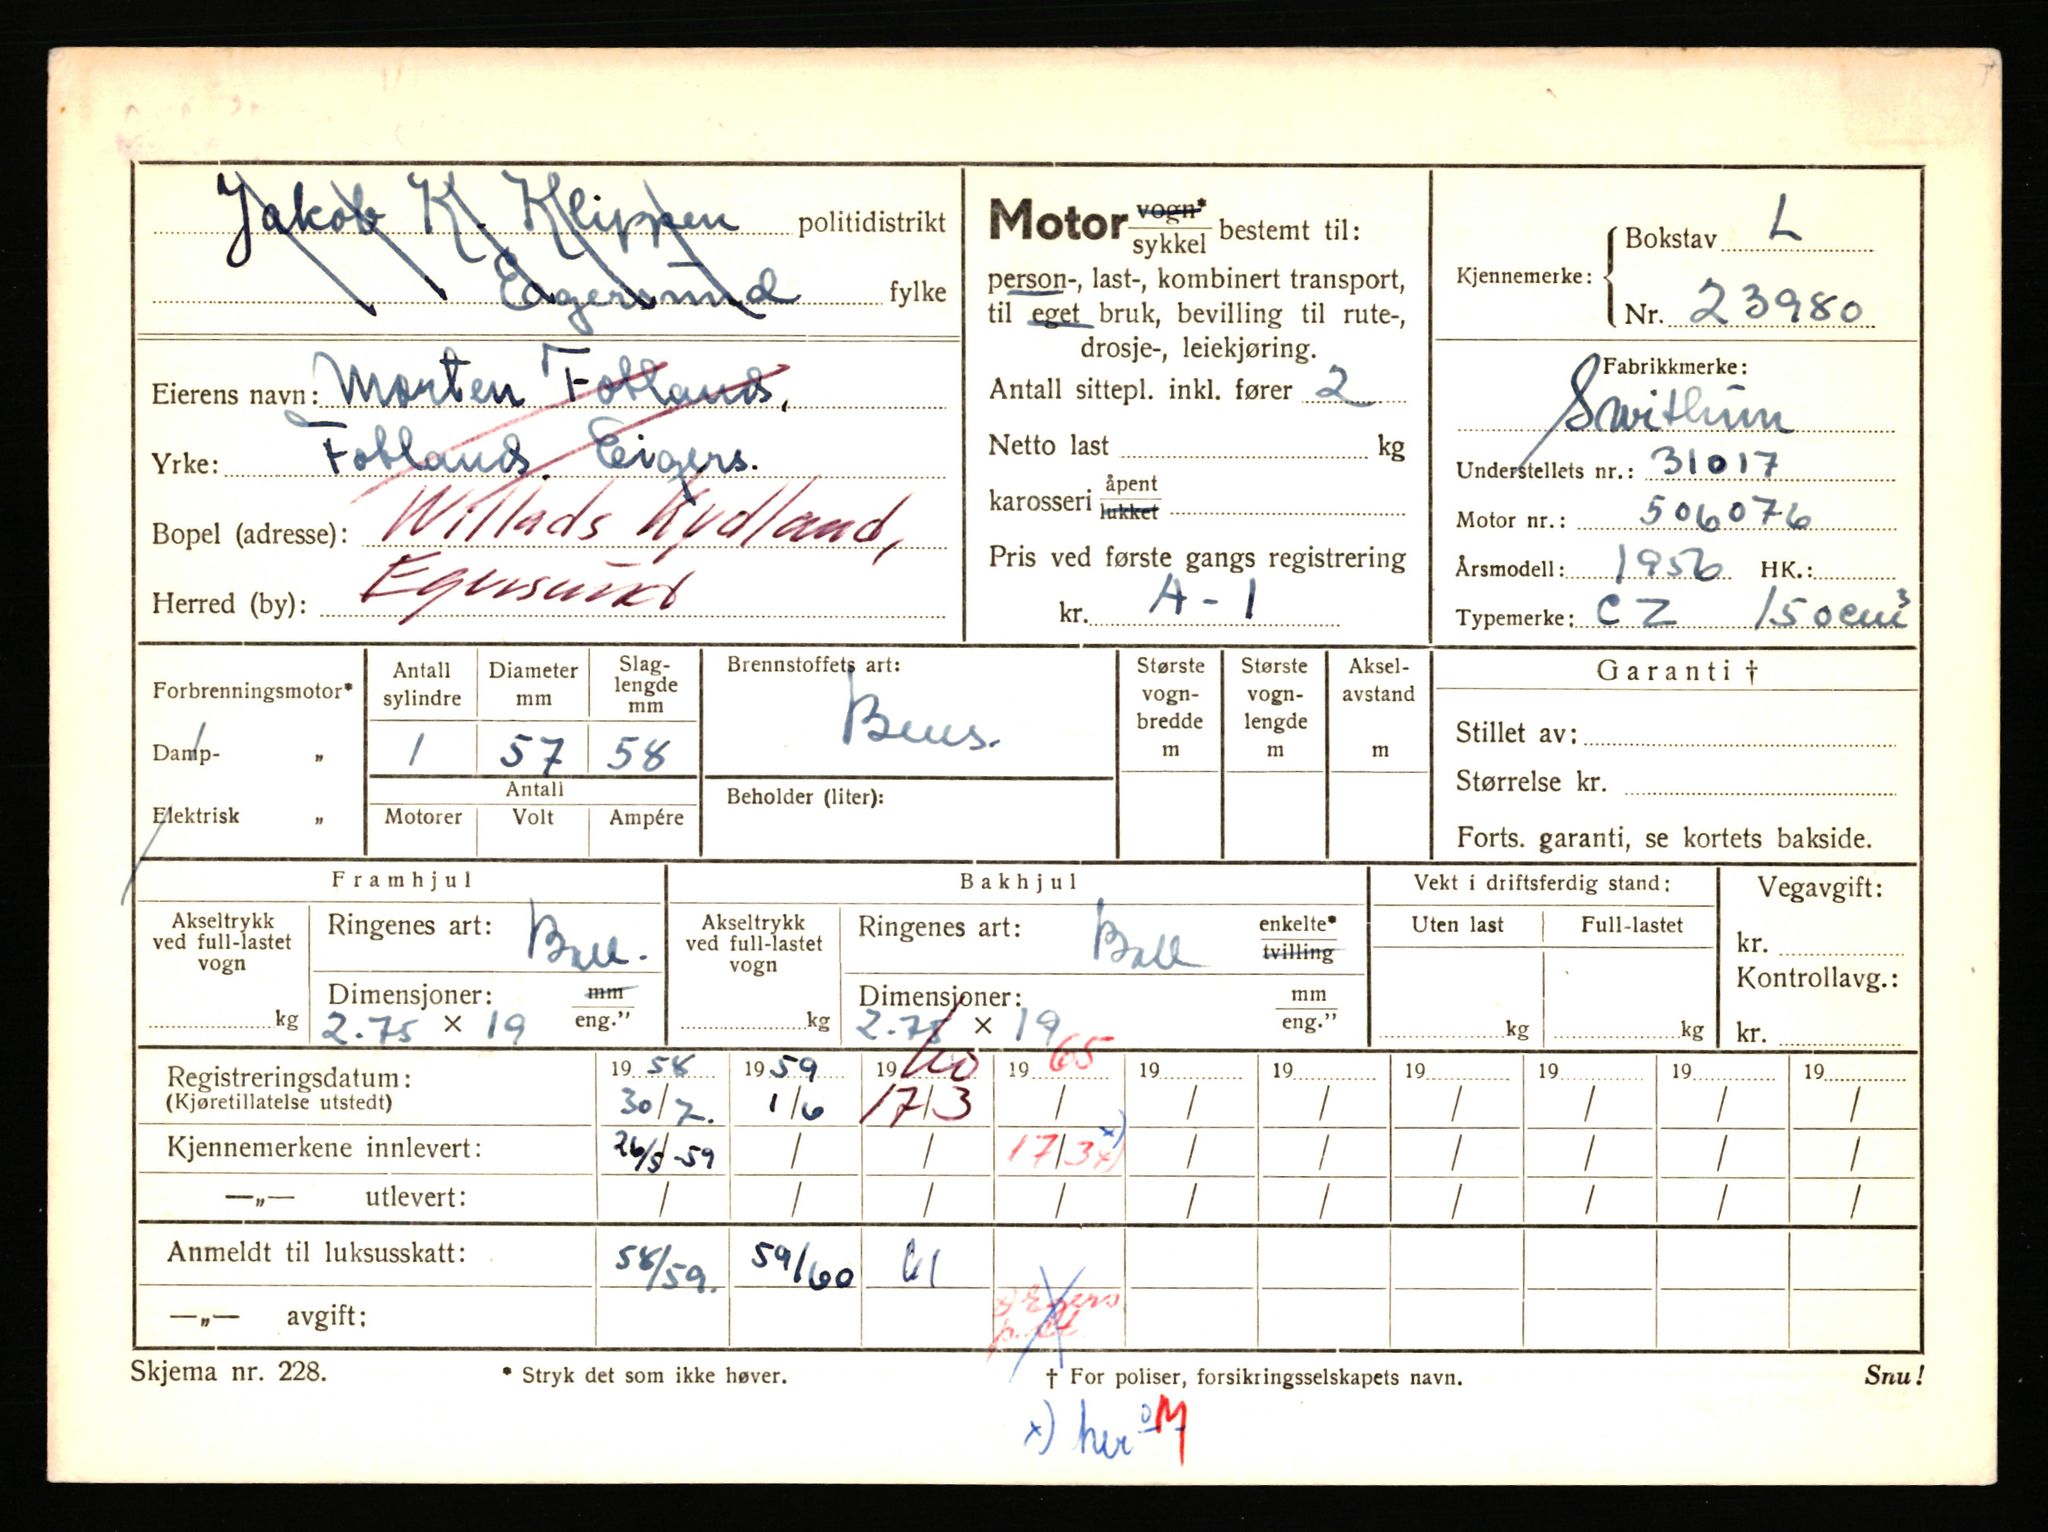 Jakob K. Klippen politidistrikt
Eagersund fylke
Eierens navn: Morten Fotland,
Yrke: Fotland. Eigers.
Bopel (adresse): Willads Kydland,
Herred (by): Egersund
Motor vogn* / sykkel bestemt til:
person-, last-, kombinert transport,
til eget bruk, bevilling til rute-,
drosje-, leiekjøring.
Antall sittepl. inkl. fører 2
Netto last kg
karosseri åpent / lukket
Pris ved første gangs registrering
kr. A - 1
Kjennemerke: Bokstav L
Nr. 23980
Fabrikkmerke:
Swithun
Understellets nr.: 31017
Motor nr.: 506076
Årsmodell: 1956 HK.:
Typemerke: CZ 150 cm³
Forbrenningsmotor*
Damp- „
Elektrisk „
Antall sylindre 1
Diameter mm 57
Slag-lengde mm 58
Antall
Motorer Volt Ampére
Brennstoffets art:
Bens.
Beholder (liter):
Største vogn-bredde m
Største vogn-lengde m
Aksel-avstand m
Garanti †
Stillet av:
Størrelse kr.
Forts. garanti, se kortets bakside.
Framhjul
Akseltrykk ved full-lastet vogn kg
Ringenes art: Ball.
Dimensjoner: mm / eng.”
2.75 × 19
Bakhjul
Akseltrykk ved full-lastet vogn kg
Ringenes art: Ball enkelte* / tvilling
Dimensjoner: mm / eng.”
2.75 × 19
Vekt i driftsferdig stand:
Uten last Full-lastet
kg kg
Vegavgift:
kr.
Kontrollavg.:
kr.
Registreringsdatum: 19 58 19 59 19 60 19 65 19 19 19 19 19 19
(Kjøretillatelse utstedt) 30/7. 1/6 17/3 / / / / / / /
Kjennemerkene innlevert: 26/5-59 / / 17/3 x) / / / / / /
—„— utlevert: / / / / / / / / / /
Anmeldt til luksusskatt: 58/59. 59/60 61
—„— avgift: x) Egers p.kt
Skjema nr. 228. * Stryk det som ikke høver. † For poliser, forsikringsselskapets navn. Snu!
x) her